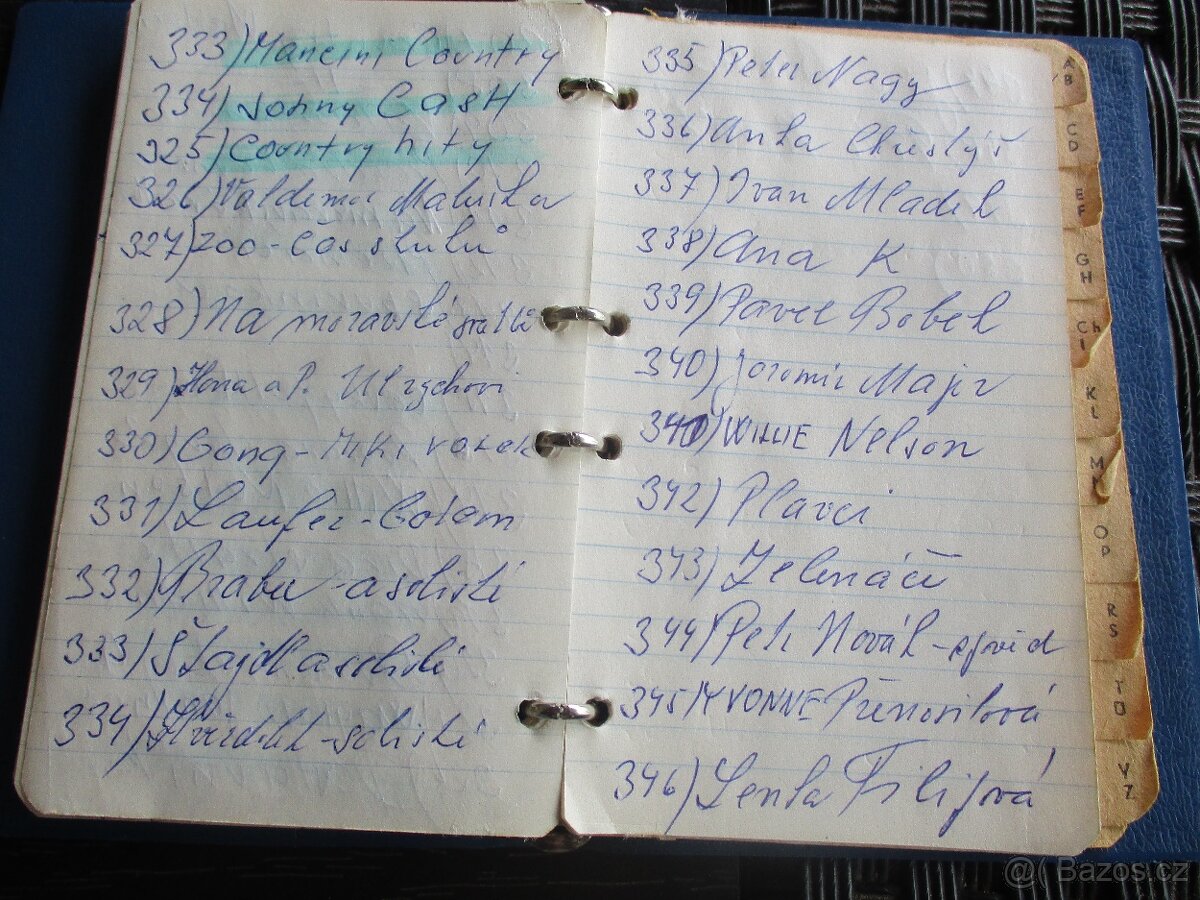 333) Mancini Country
334) Johny CasH
325) Country hity
326) Valdemar Matuška
327) ZOO - čas sluhů
328) Na moravské
329) Hana a P. Ulrychovi
330) Gong - Miki
331) Laufer - Golem
332) Brabec a solisté
333) Štajdl a solisté
334) Hvězdek - solisté
335) Peter Nagy
336) Anka
337) Ivan Mládek
338) Ana K
339) Pavel Bobek
340) Jaromír Majer
340) WILLIE Nelson
342) Plavci
343) Zelenáči
344) Petr Novák -
345) YVONNE Přenosilová
346) Lenka Filipová
A
B
C
D
E
F
G
H
Ch
I
K
L
M
O
P
R
S
T
U
V
Z
@( Bazos.cz